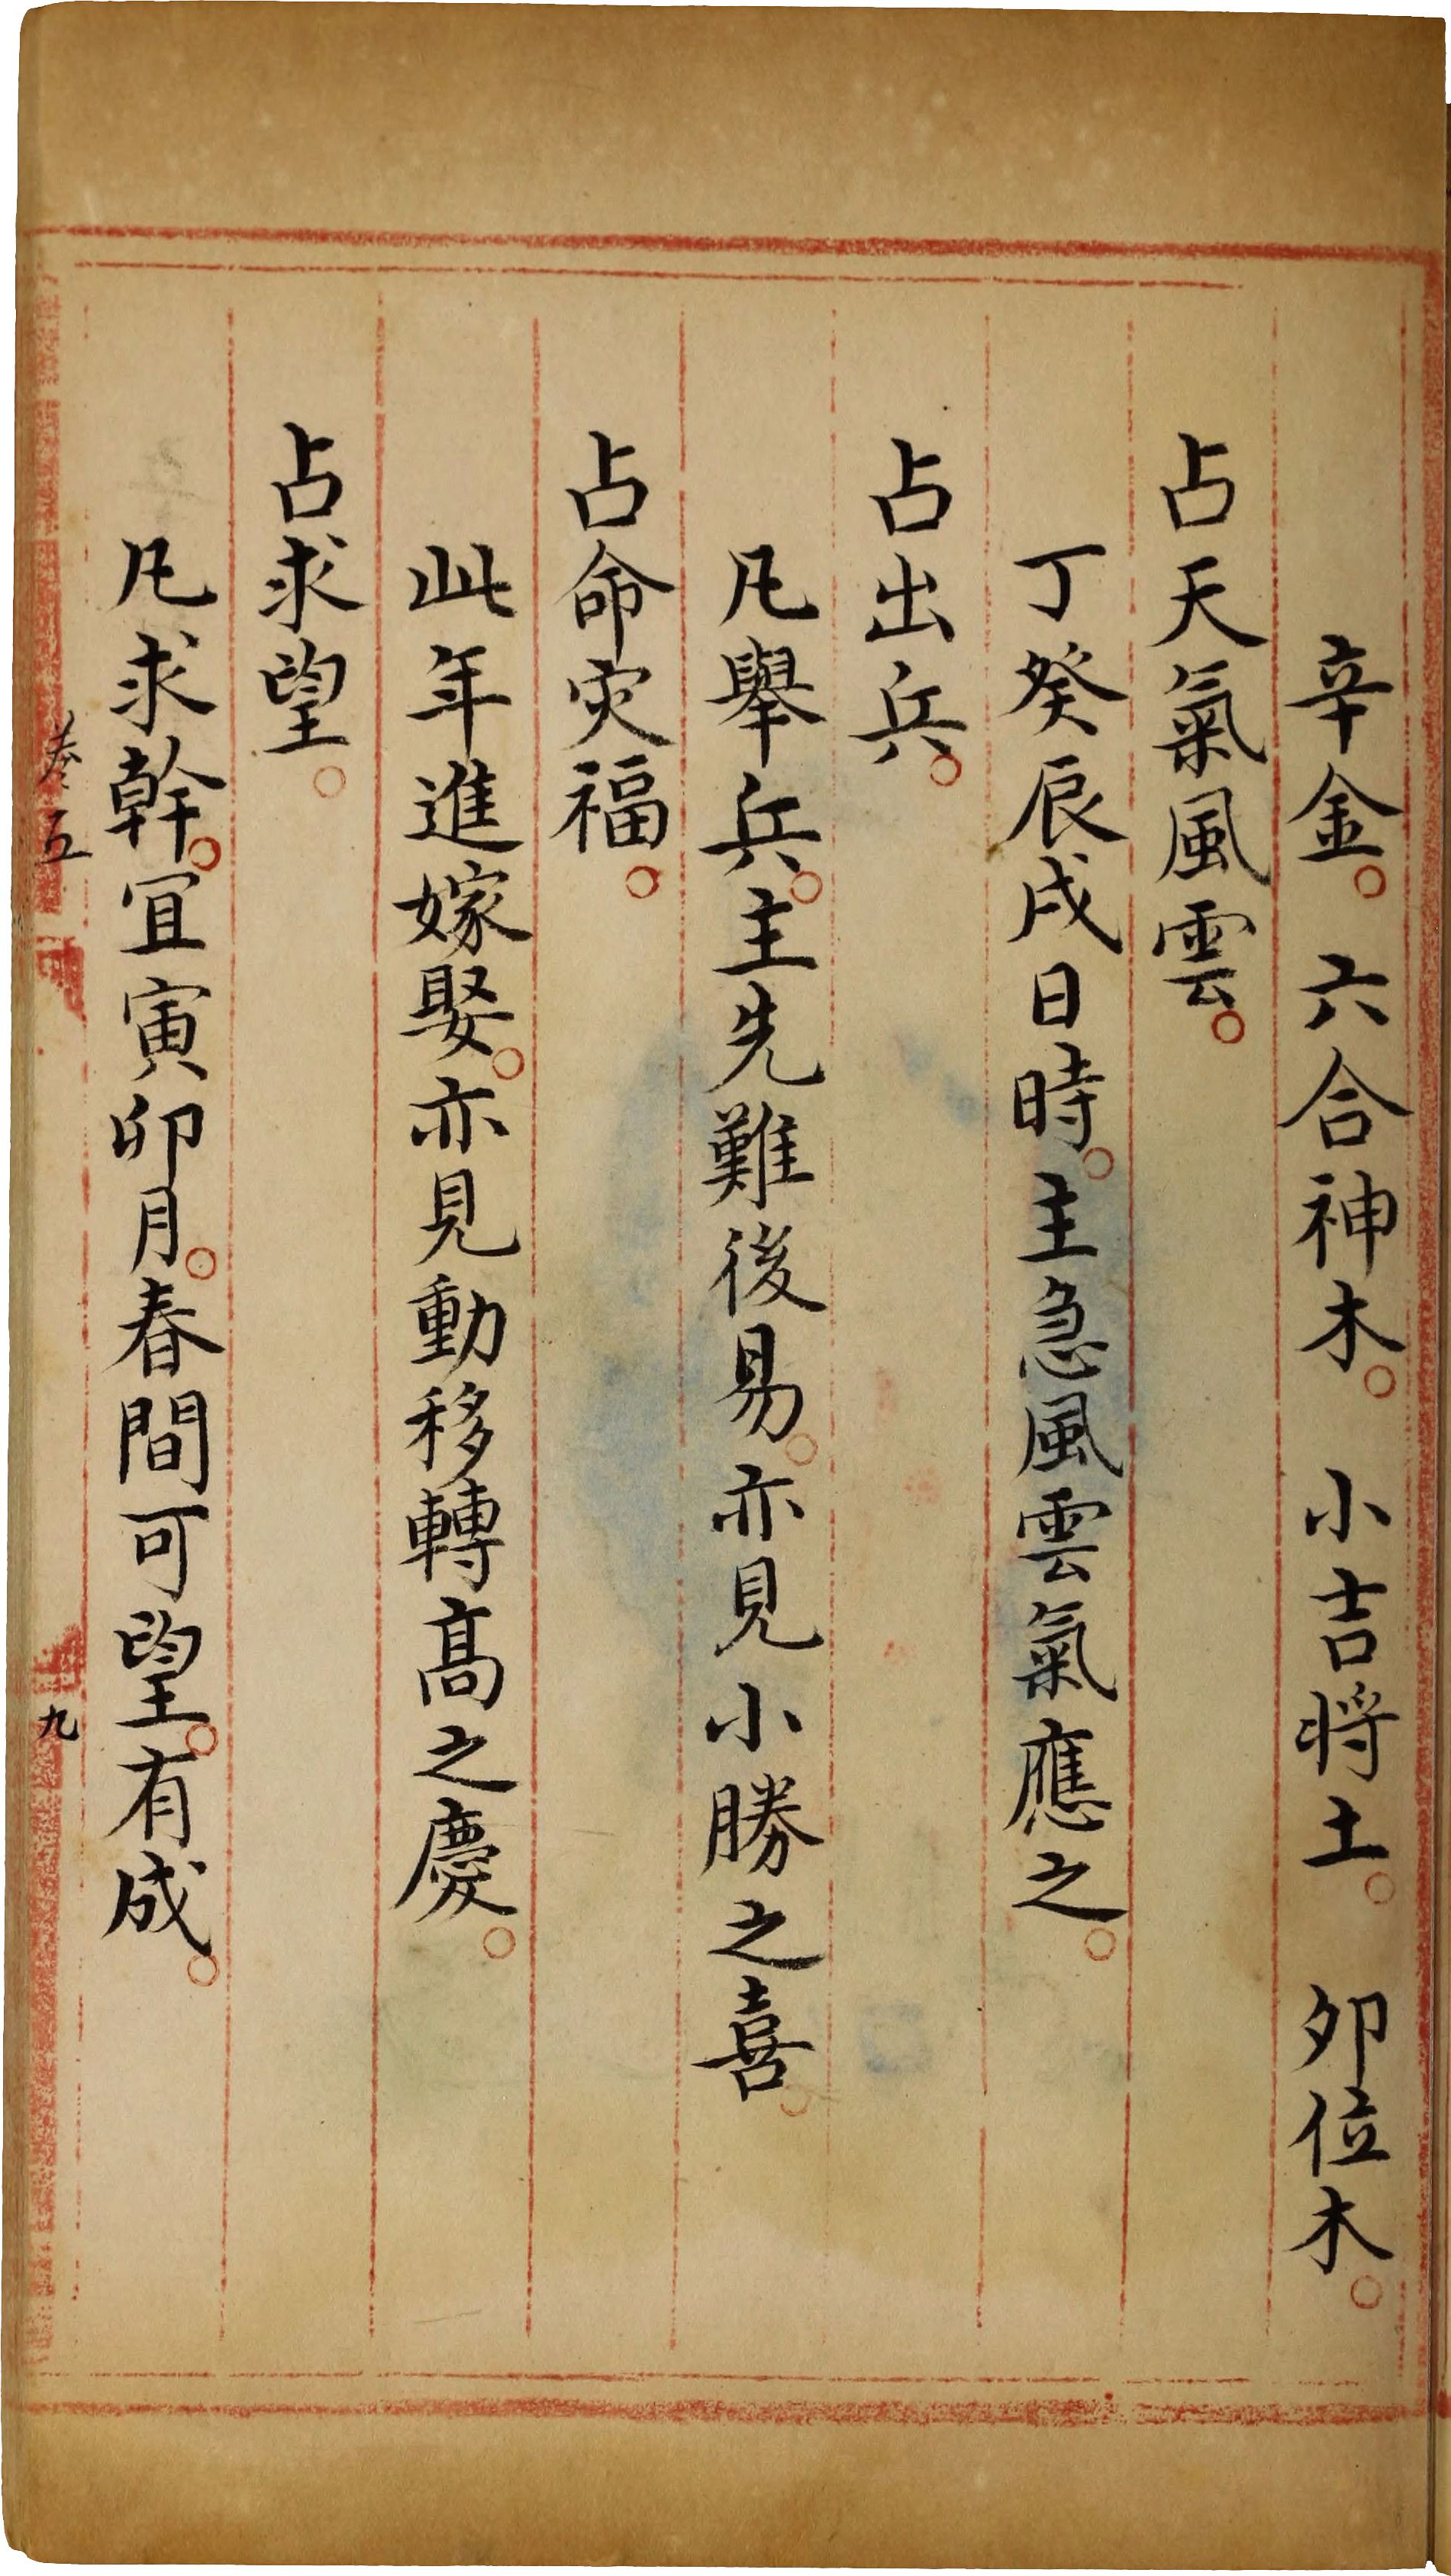 辛金。六合神木。小吉将土。夘位木。
占天氣風雲。
丁癸辰戌日時。主急風雲氣應之。
占出兵。
凡舉兵。主先難後易。亦見小勝之喜。
占命灾福。
此年進嫁娶。亦見動移轉髙之慶。
占求望。
凡求幹。宜寅卯月。春間可望。有成。
卷五
九